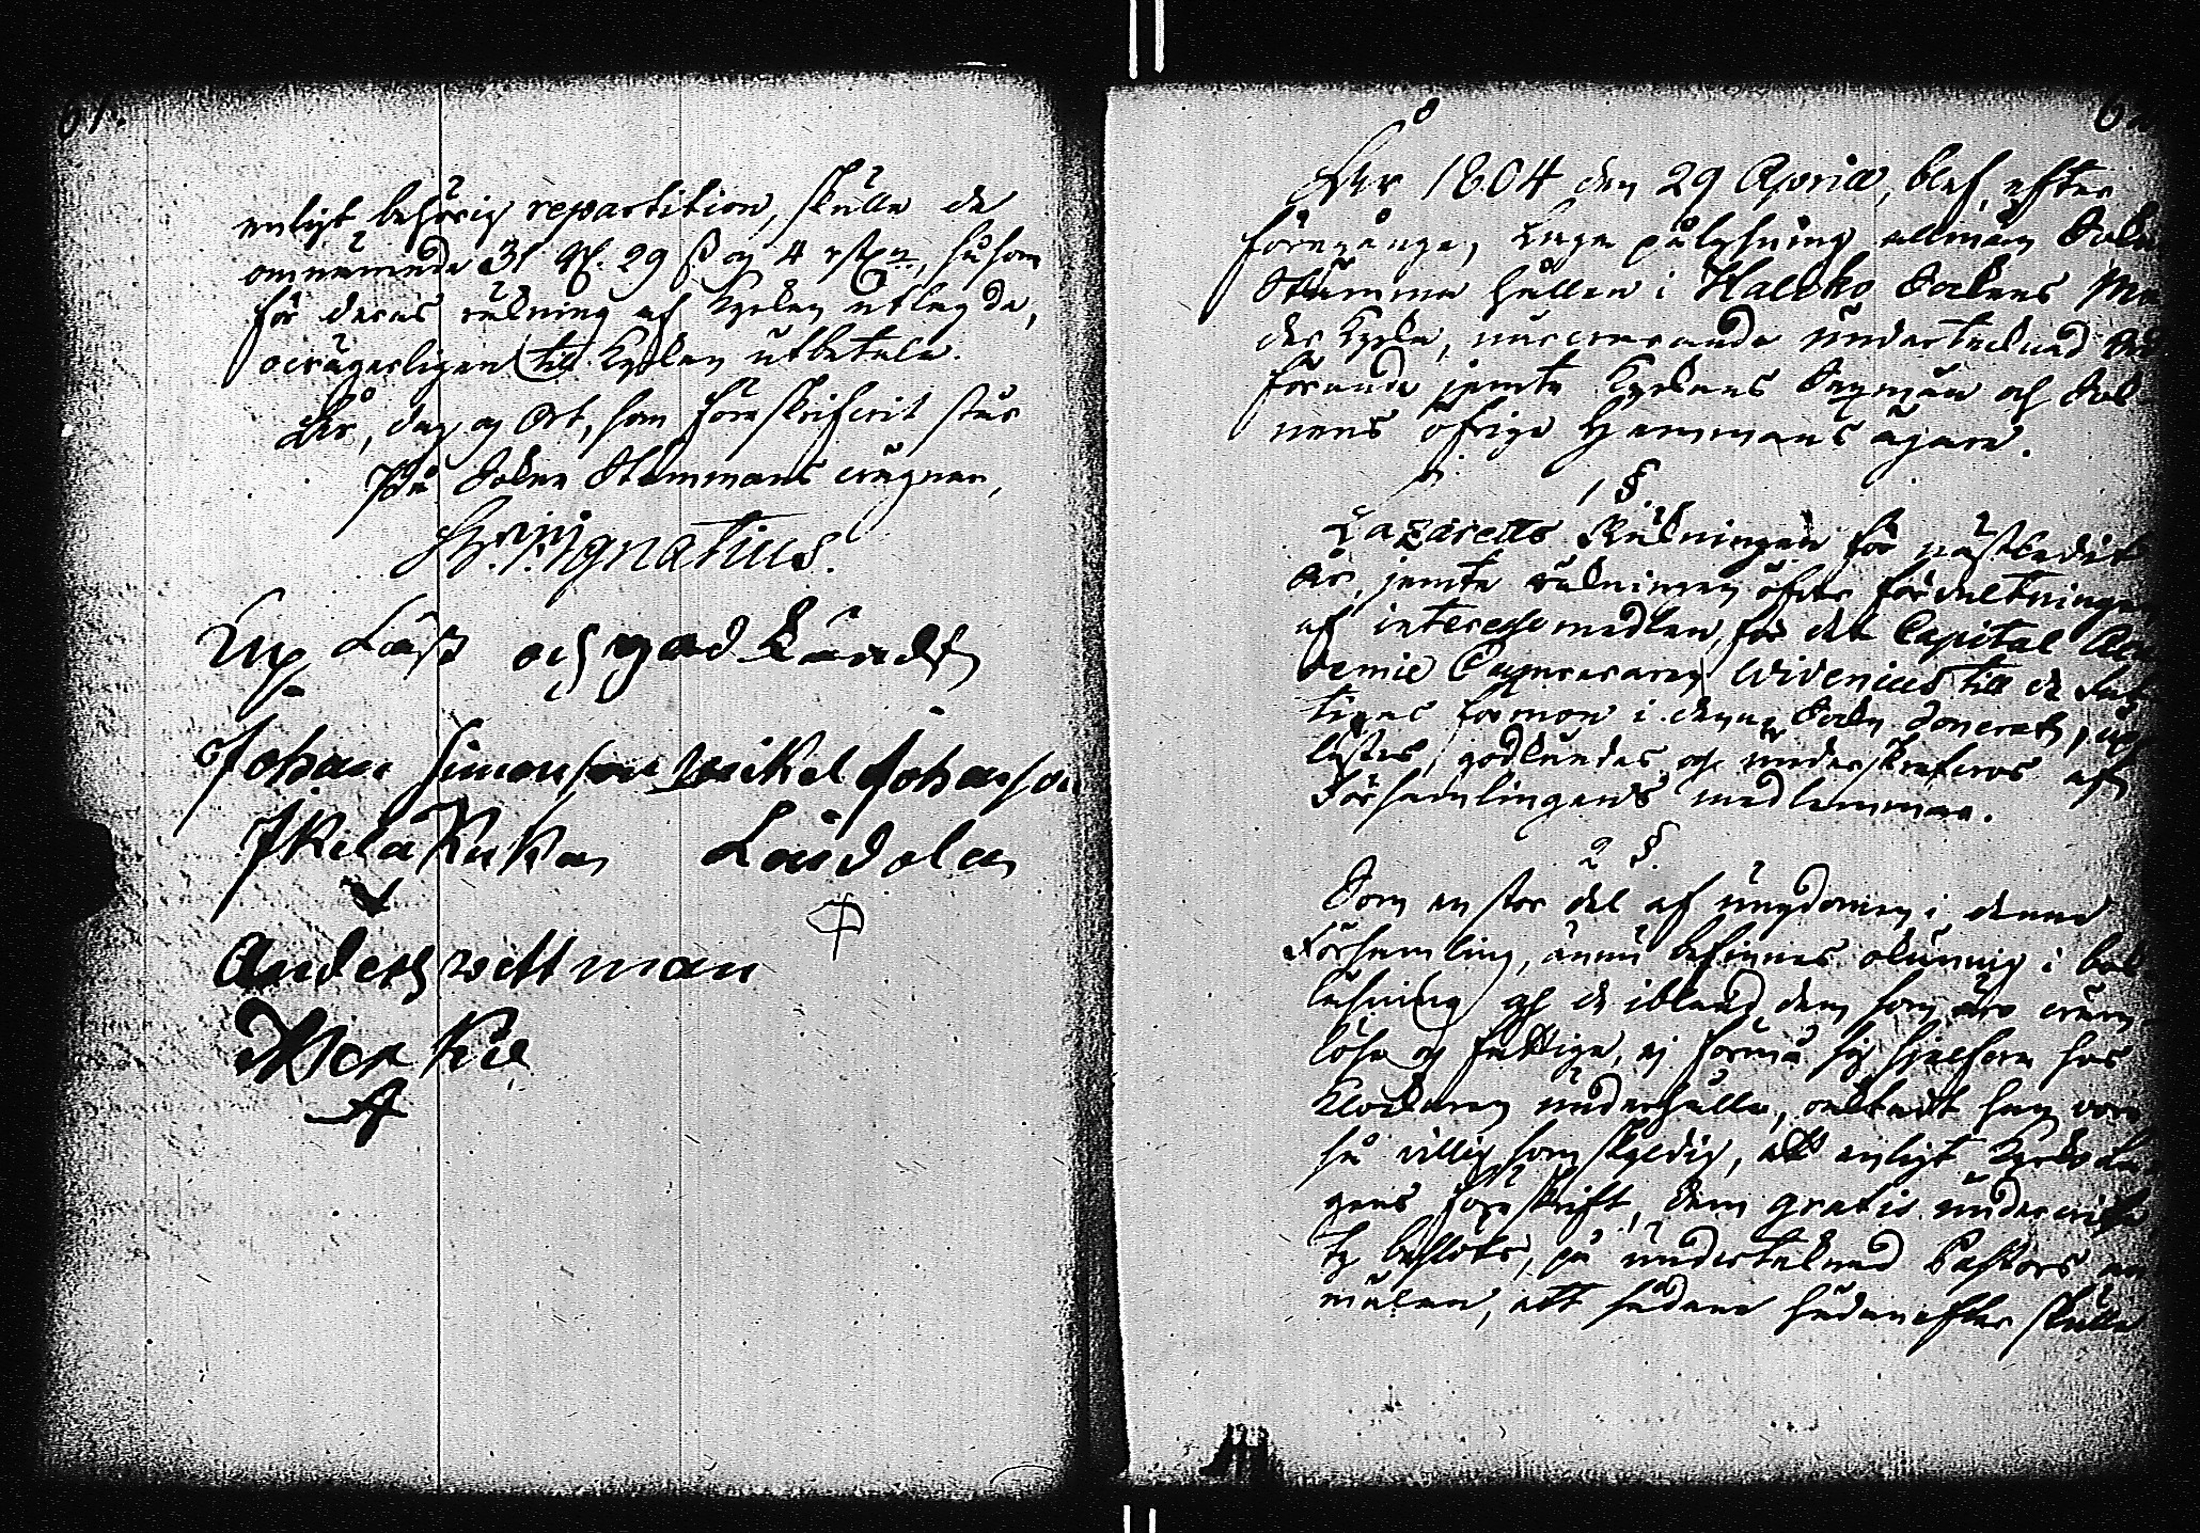 61.
enligt behörig repartition, skulle de
omnämnde 31 Rd. 29 ß og 4 rst., såsom
för deras räkning af Kyrkan utlagde,
ovägerligen till Kyrkan utbetala.
År, dag og Ort, som föreskrifvit står
På Sokne Stämmans vägnar,
Ignatius.
Up Läst och god kändt
Johan Simonsson Mikel Johansson
Kukas Laudola
Anders wettman
År 1804 den 29 April, blef, efter
föregången, laga pålysning allmän Sokne
Stämma hållen i Halcko Sokens Mo
der Kyrka, närvarande undertecknad Ord
förande jemte Kyrkans Sexmän och Sok
nens öfrige Hemmans ägare.
1 §.
Lazaretts Räkningen för nästledit
år, jemte räkningen öfver fördeltningen
af interesse medlen, för det Capital
Widenius till de fat
tigas förmon i denna Sokn donerat, up
lästes, godkändes, og underskrefvos af
Församlingens medlemmar.
2 §.
Som en stor del af ungdomen i denna
Församling, ännu befinnes okunnig i bok
läsning och de ibland dem som äro värn
lösa og fattiga, ej förmå sig sjelfva hos
Klockaren underhålla, oaktadt han vore
så villig som skyldig, att enligt Kyrkola
gens föreskrift, dem gratis undervisa
ty beslöts, på undertecknad Pastors an
mälan, att sådane hädanefter skulle